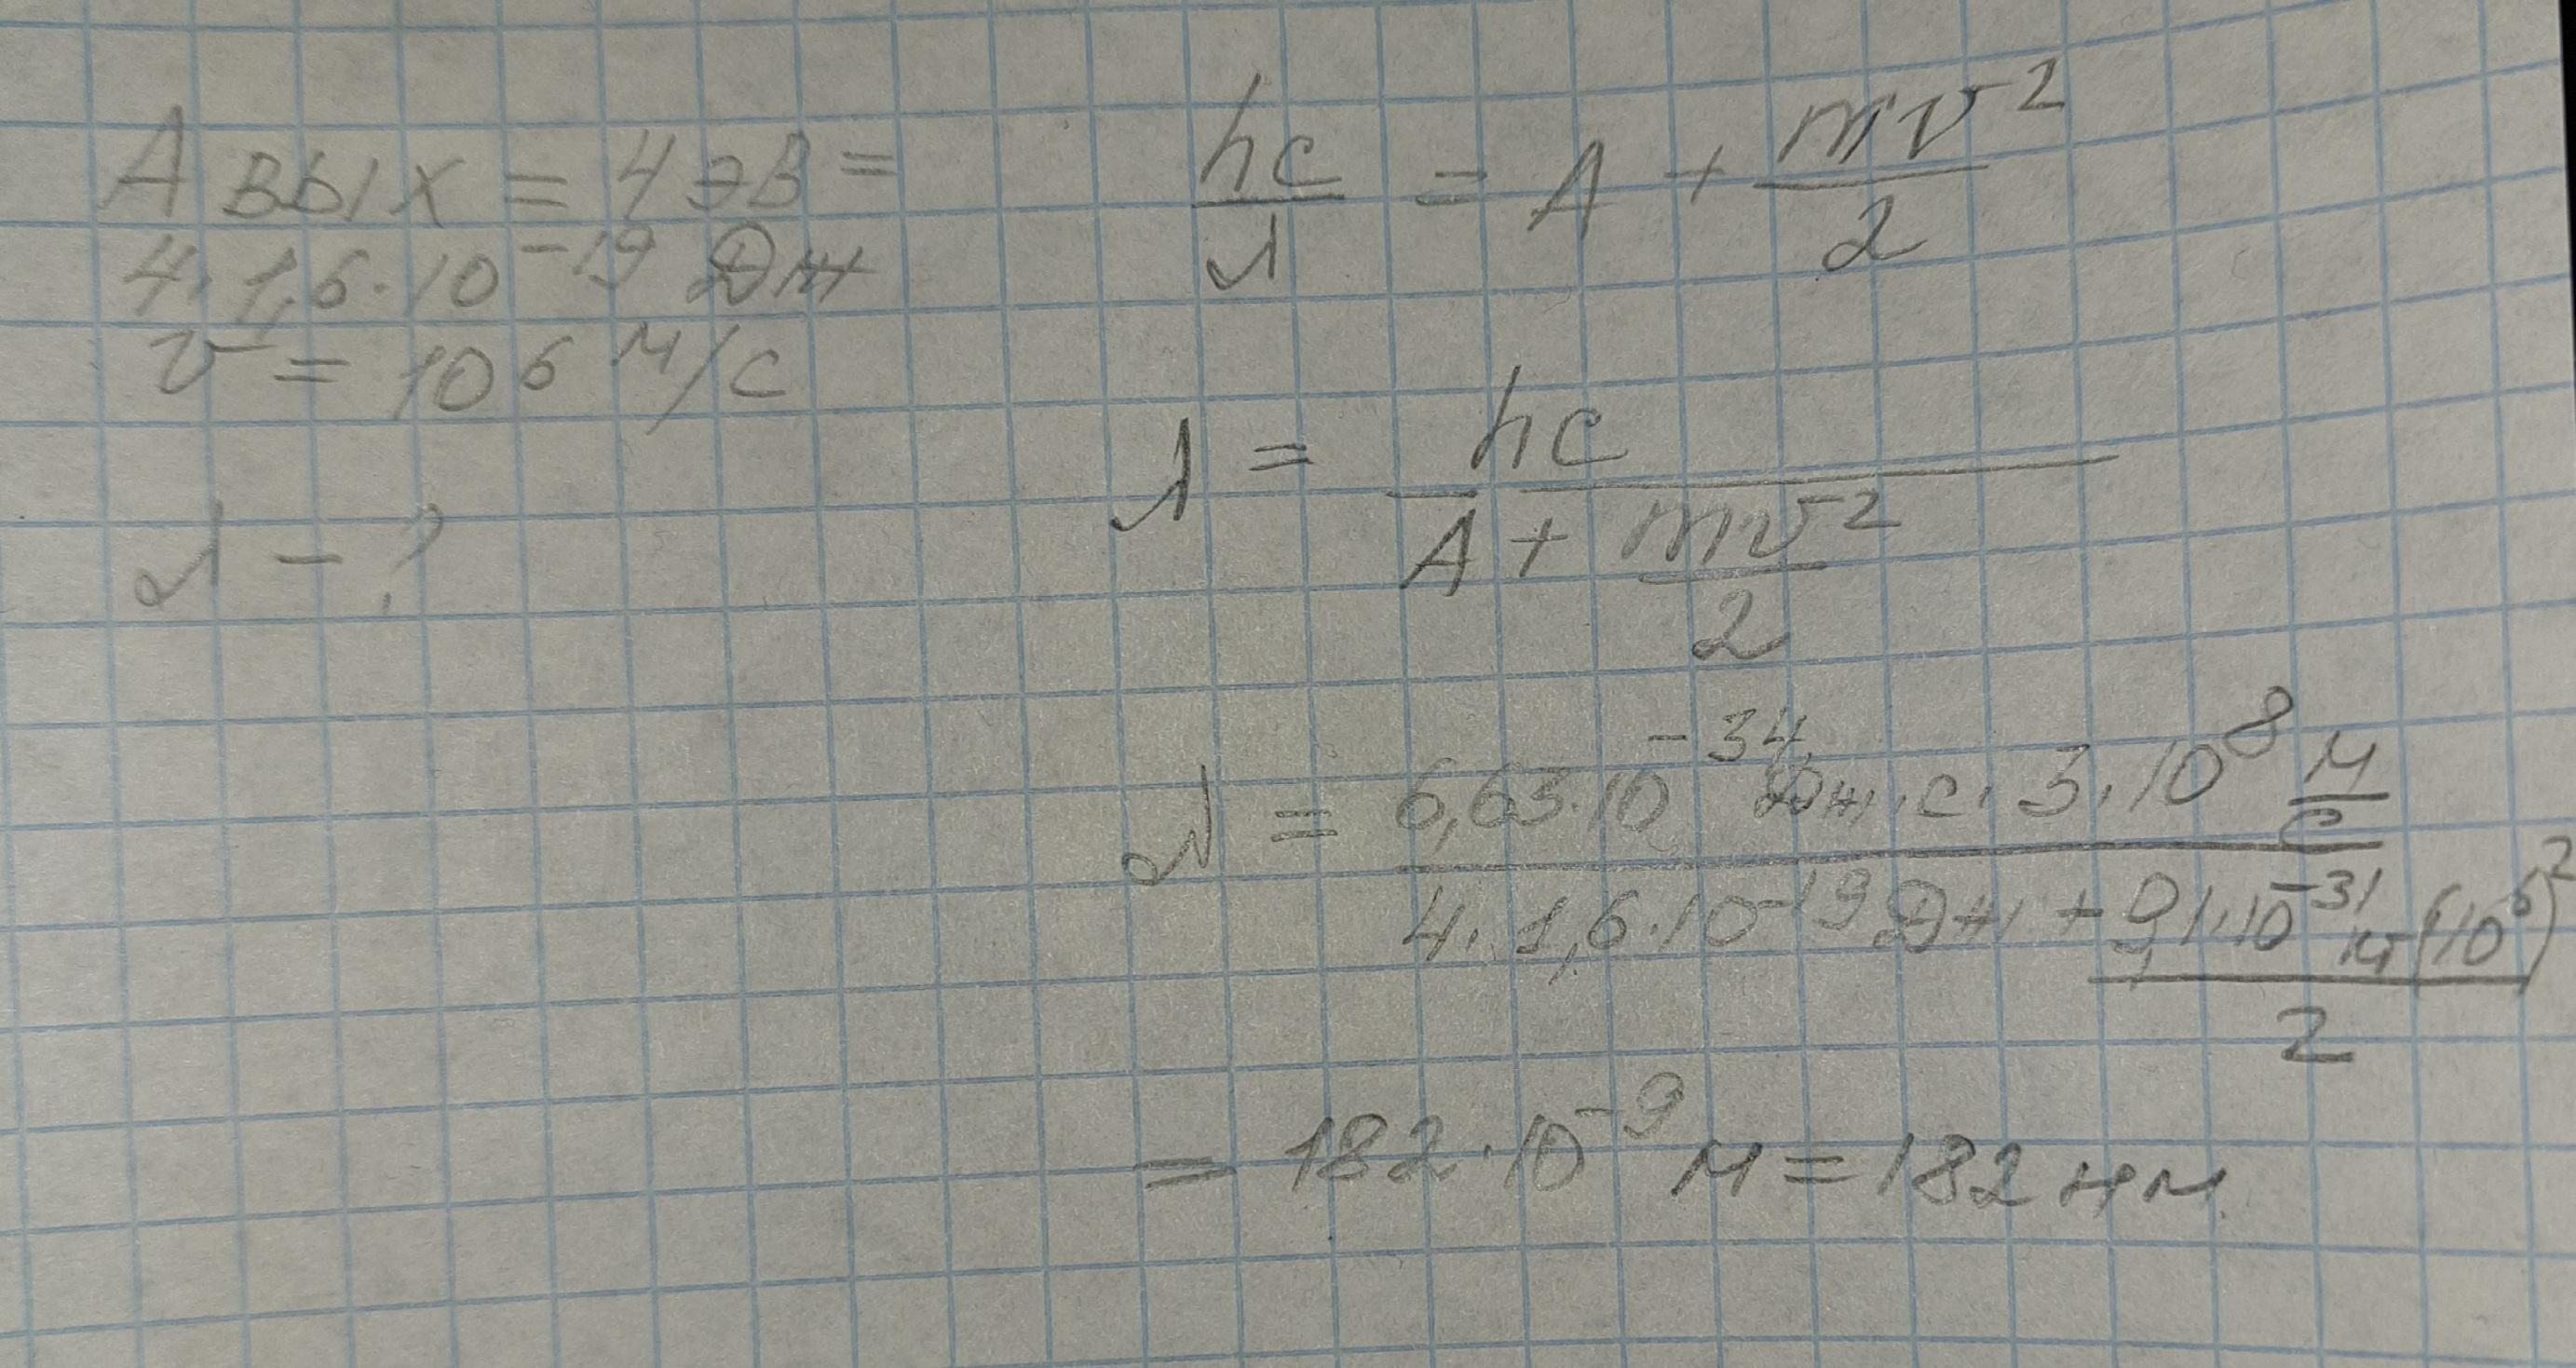 A вых = 4 эВ =
4 · 1,6 · 10⁻¹⁹ Дж
v = 10⁶ м/с
λ - ?
hc/λ = A + mv²/2
λ = hc/(A + mv²/2)
λ = (6,63 · 10⁻³⁴ Дж · с · 3 · 10⁸ м/с)/(4 · 1,6 · 10⁻¹⁹ Дж + 9,1 · 10⁻³¹ кг (10⁶)²/2)
= 182 · 10⁻⁹ м = 182 нм